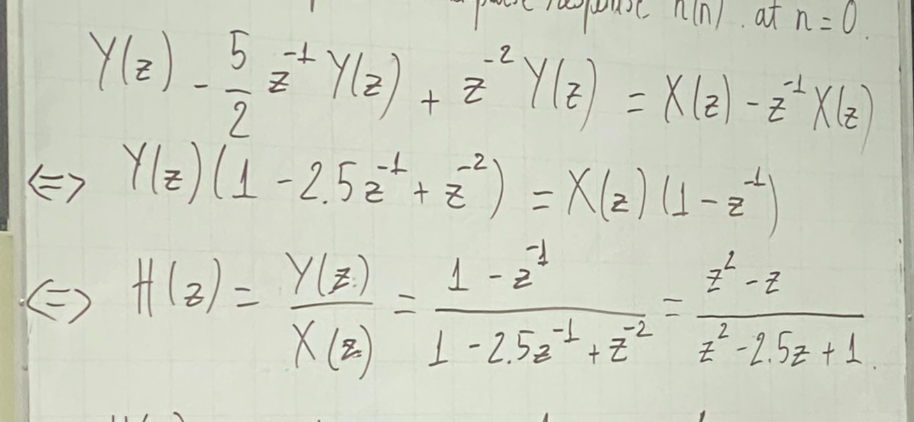 response h(n). at n = 0.
Y(z) - 5/2 z^-1 Y(z) + z^-2 Y(z) = X(z) - z^-1 X(z)
<=> Y(z)(1 - 2.5z^-1 + z^-2) = X(z)(1 - z^-1)
<=> H(z) = Y(z)/X(z) = (1 - z^-1)/(1 - 2.5z^-1 + z^-2) = (z^2 - z)/(z^2 - 2.5z + 1).